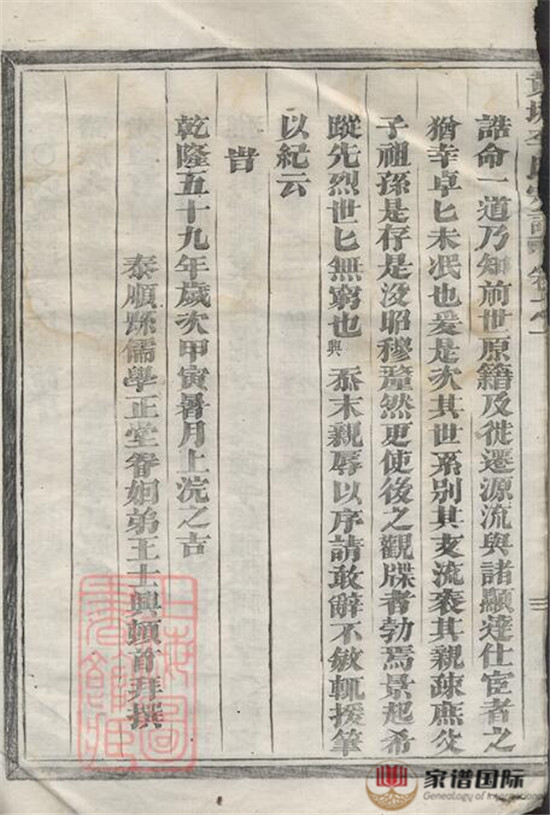 誥命一道乃知前世原籍及徙遷源流與諸顯達仕宦者之
猶幸卓匕未泯也爰是次其世系別其支流袠其親疎庶父
子祖孫是存是没昭穆釐然更使後之觀牒者勃焉景起希
蹤先烈世匕無窮也興忝末親辱以序請敢辭不敏輒援筆
以紀云
旹
乾隆五十九年歲次甲寅暑月上浣之吉
泰順縣儒學正堂眷姻弟王士興頓首拜撰
家谱国际
Genealogy of International